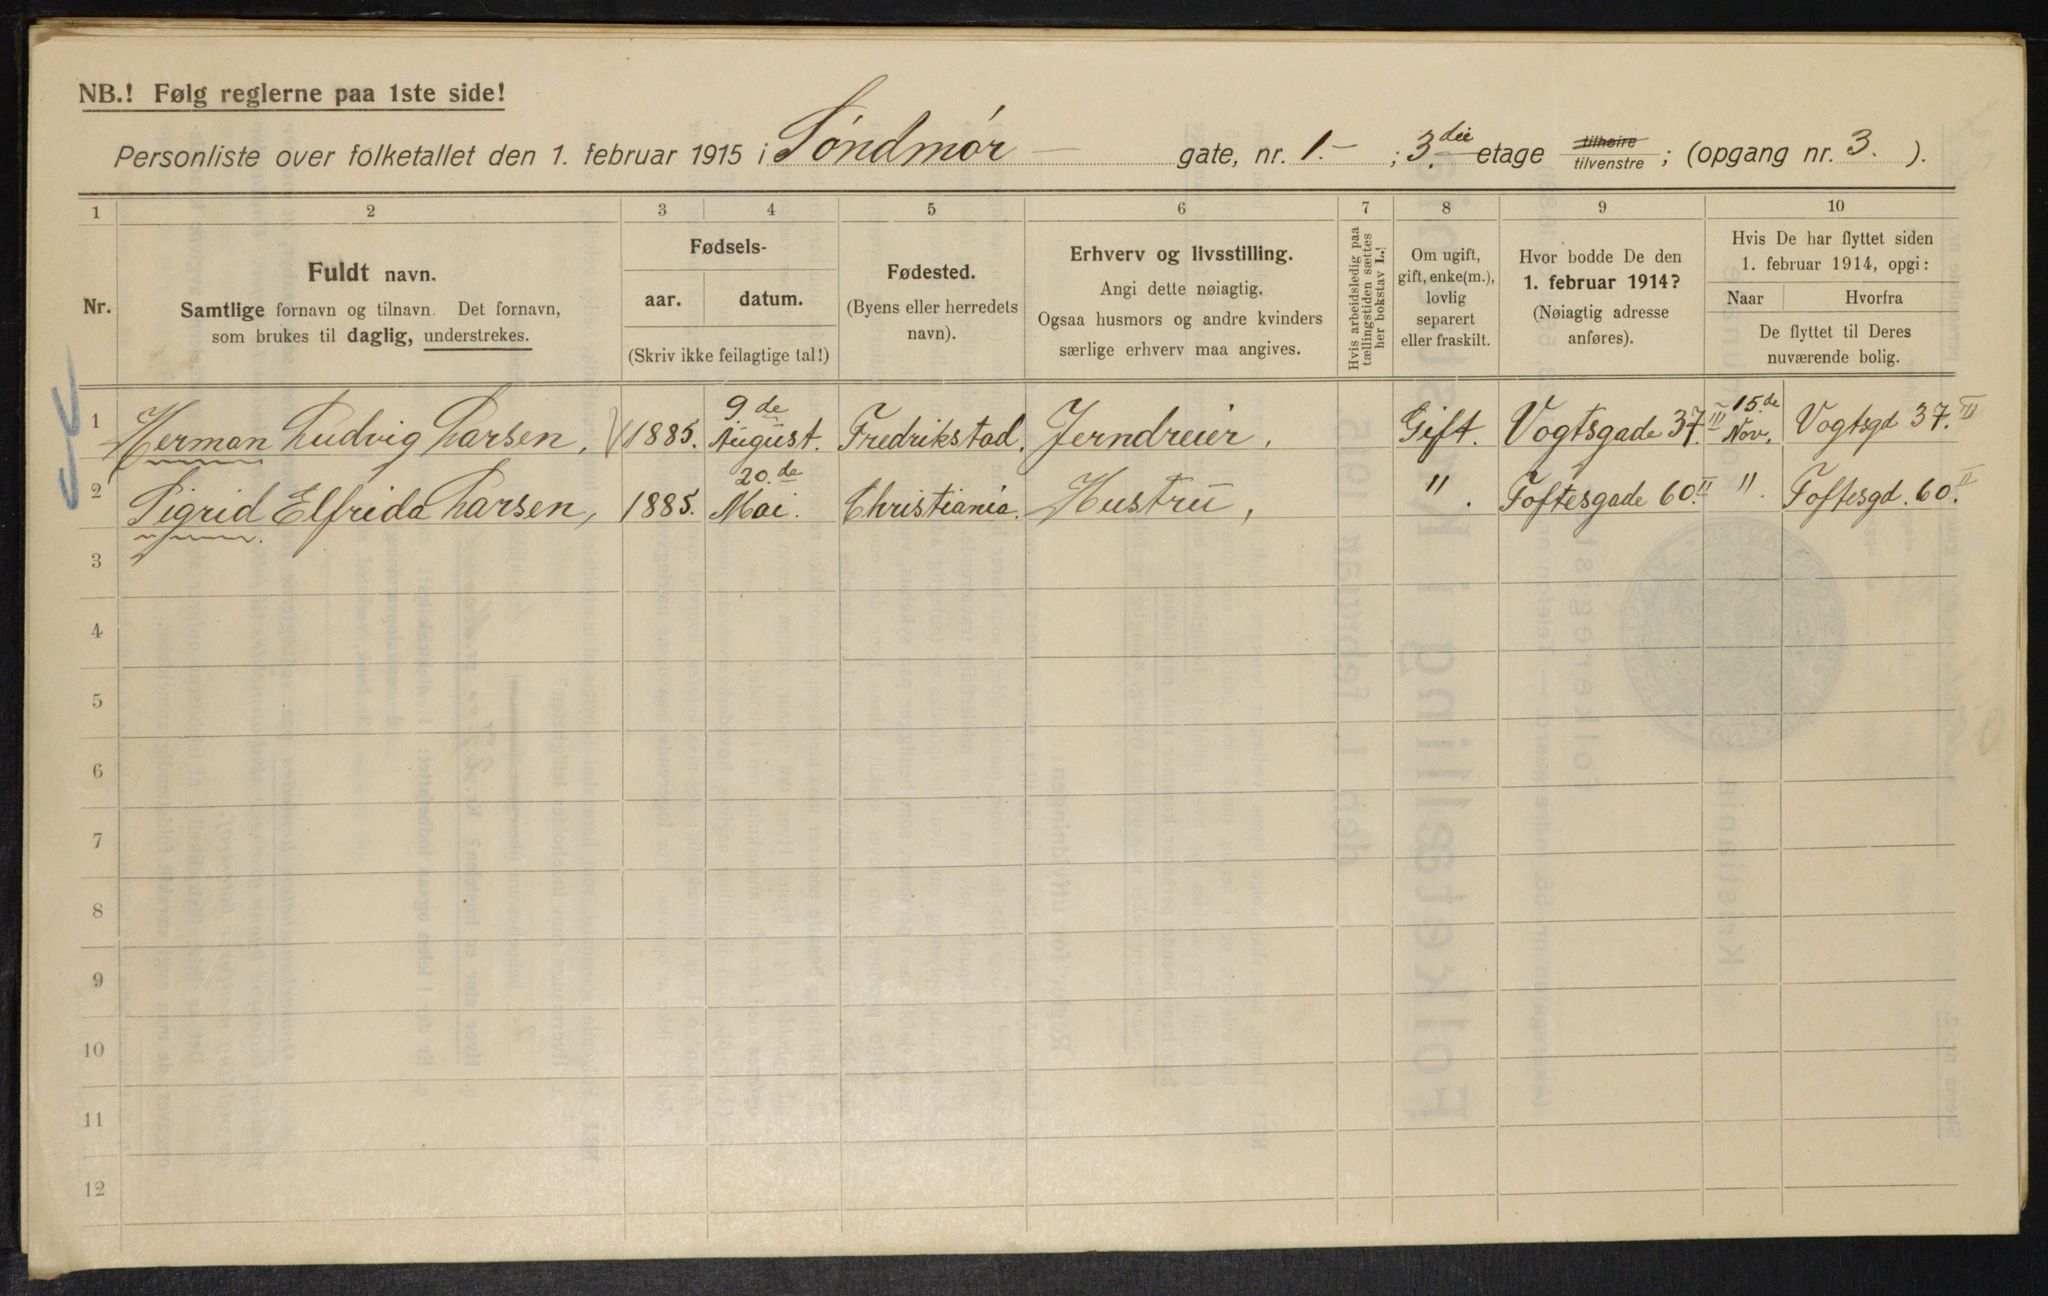 NB.! Følg reglerne paa 1ste side!
Personliste over folketallet den 1. februar 1915 i Søndmør — gate, nr. 1.- ; 3.die etage tilhøire tilvenstre ; (opgang nr. 3. ).
1 2 3 4 5 6 7 8 9 10
Nr.
Fuldt navn.
Samtlige fornavn og tilnavn. Det fornavn,
som brukes til daglig, understrekes.
Fødsels-
aar. datum.
(Skriv ikke feilagtige tal!)
Fødested.
(Byens eller herredets
navn).
Erhverv og livsstilling.
Angi dette nøiagtig.
Ogsaa husmors og andre kvinders
særlige erhverv maa angives.
Hvis arbeidsledig paa
tællingstiden sættes
her bokstav L.
Om ugift,
gift, enke(m.),
lovlig
separert
eller fraskilt.
Hvor bodde De den
1. februar 1914?
(Nøiagtig adresse
anføres).
Hvis De har flyttet siden
1. februar 1914, opgi:
Naar Hvorfra
De flyttet til Deres
nuværende bolig.
1 Herman Ludvig Larsen, 1885. 9de August. Fredrikstad. Jerndreier, Gift. Vogtsgade 37.III 15.de Nov. Vogtsgd 37.III
2 Sigrid Elfrida Larsen, 1885. 20.de Mai. Christiania. Hustru, " . Foftesgade 60.II " . Foftesgd. 60.II
3
4
5
6
7
8
9
10
11
12